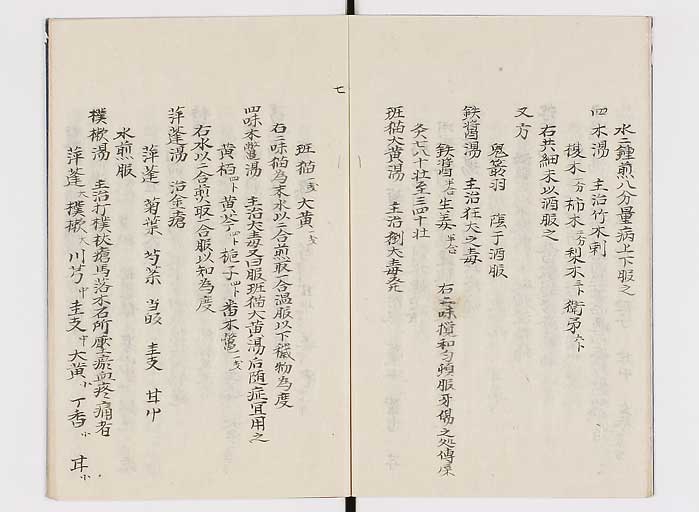 水二鍾煎八分量病上下服之
四木湯　主治竹木刺
椶木 柿木 梨木 衛矛
右共細末以酒服之
又方
鬼箭羽　陰干酒服
鉄醤湯　主治狂犬之毒
鉄醤 生姜 右二味攪和匀頻服牙傷之処傅
灸七八十壮至三四十壮
班猫大黄湯　主治劇犬毒
七
班猫 大黄
右二味猫為末水以二合煎取一合温服以下穢物為度
四味木鱉湯　主治犬毒又曰服班猫大黄湯后随症宜用之
黄栢 黄芩 梔子 番木鱉
右水以二合煎取一合服以知為度
萍蓬湯　治金瘡
萍蓬　菊葉　芎 当 圭支　甘
水煎服
樸樕湯　主治打撲杖瘡馬落木石所壓瘀血疼痛者
萍蓬大 樸樕大 川芎中 圭支中 大黄小 丁香小 甘小